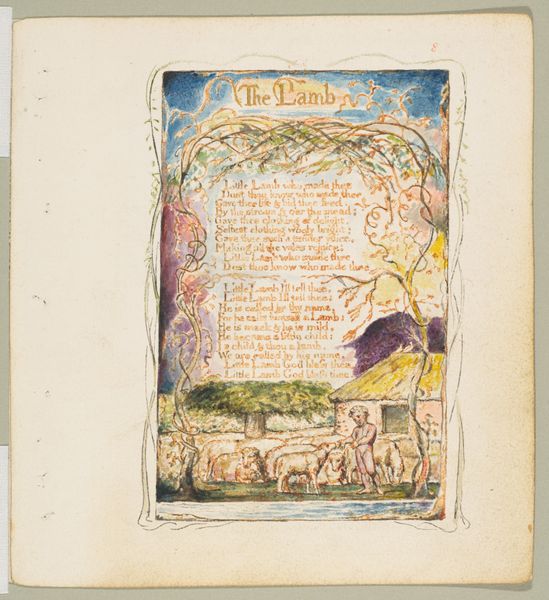 8
The Lamb
Little Lamb who made thee
Dost thou know who made thee
Gave thee life & bid thee feed.
By the stream & o'er the mead;
Gave thee clothing of delight,
Softest clothing wooly bright;
Gave thee such a tender voice,
Making all the vales rejoice:
Little Lamb who made thee
Dost thou know who made thee
Little Lamb I'll tell thee,
Little Lamb I'll tell thee;
He is called by thy name,
For he calls himself a Lamb:
He is meek & he is mild,
He became a little child:
I a child & thou a lamb,
We are called by his name.
Little Lamb God bless thee.
Little Lamb God bless thee.